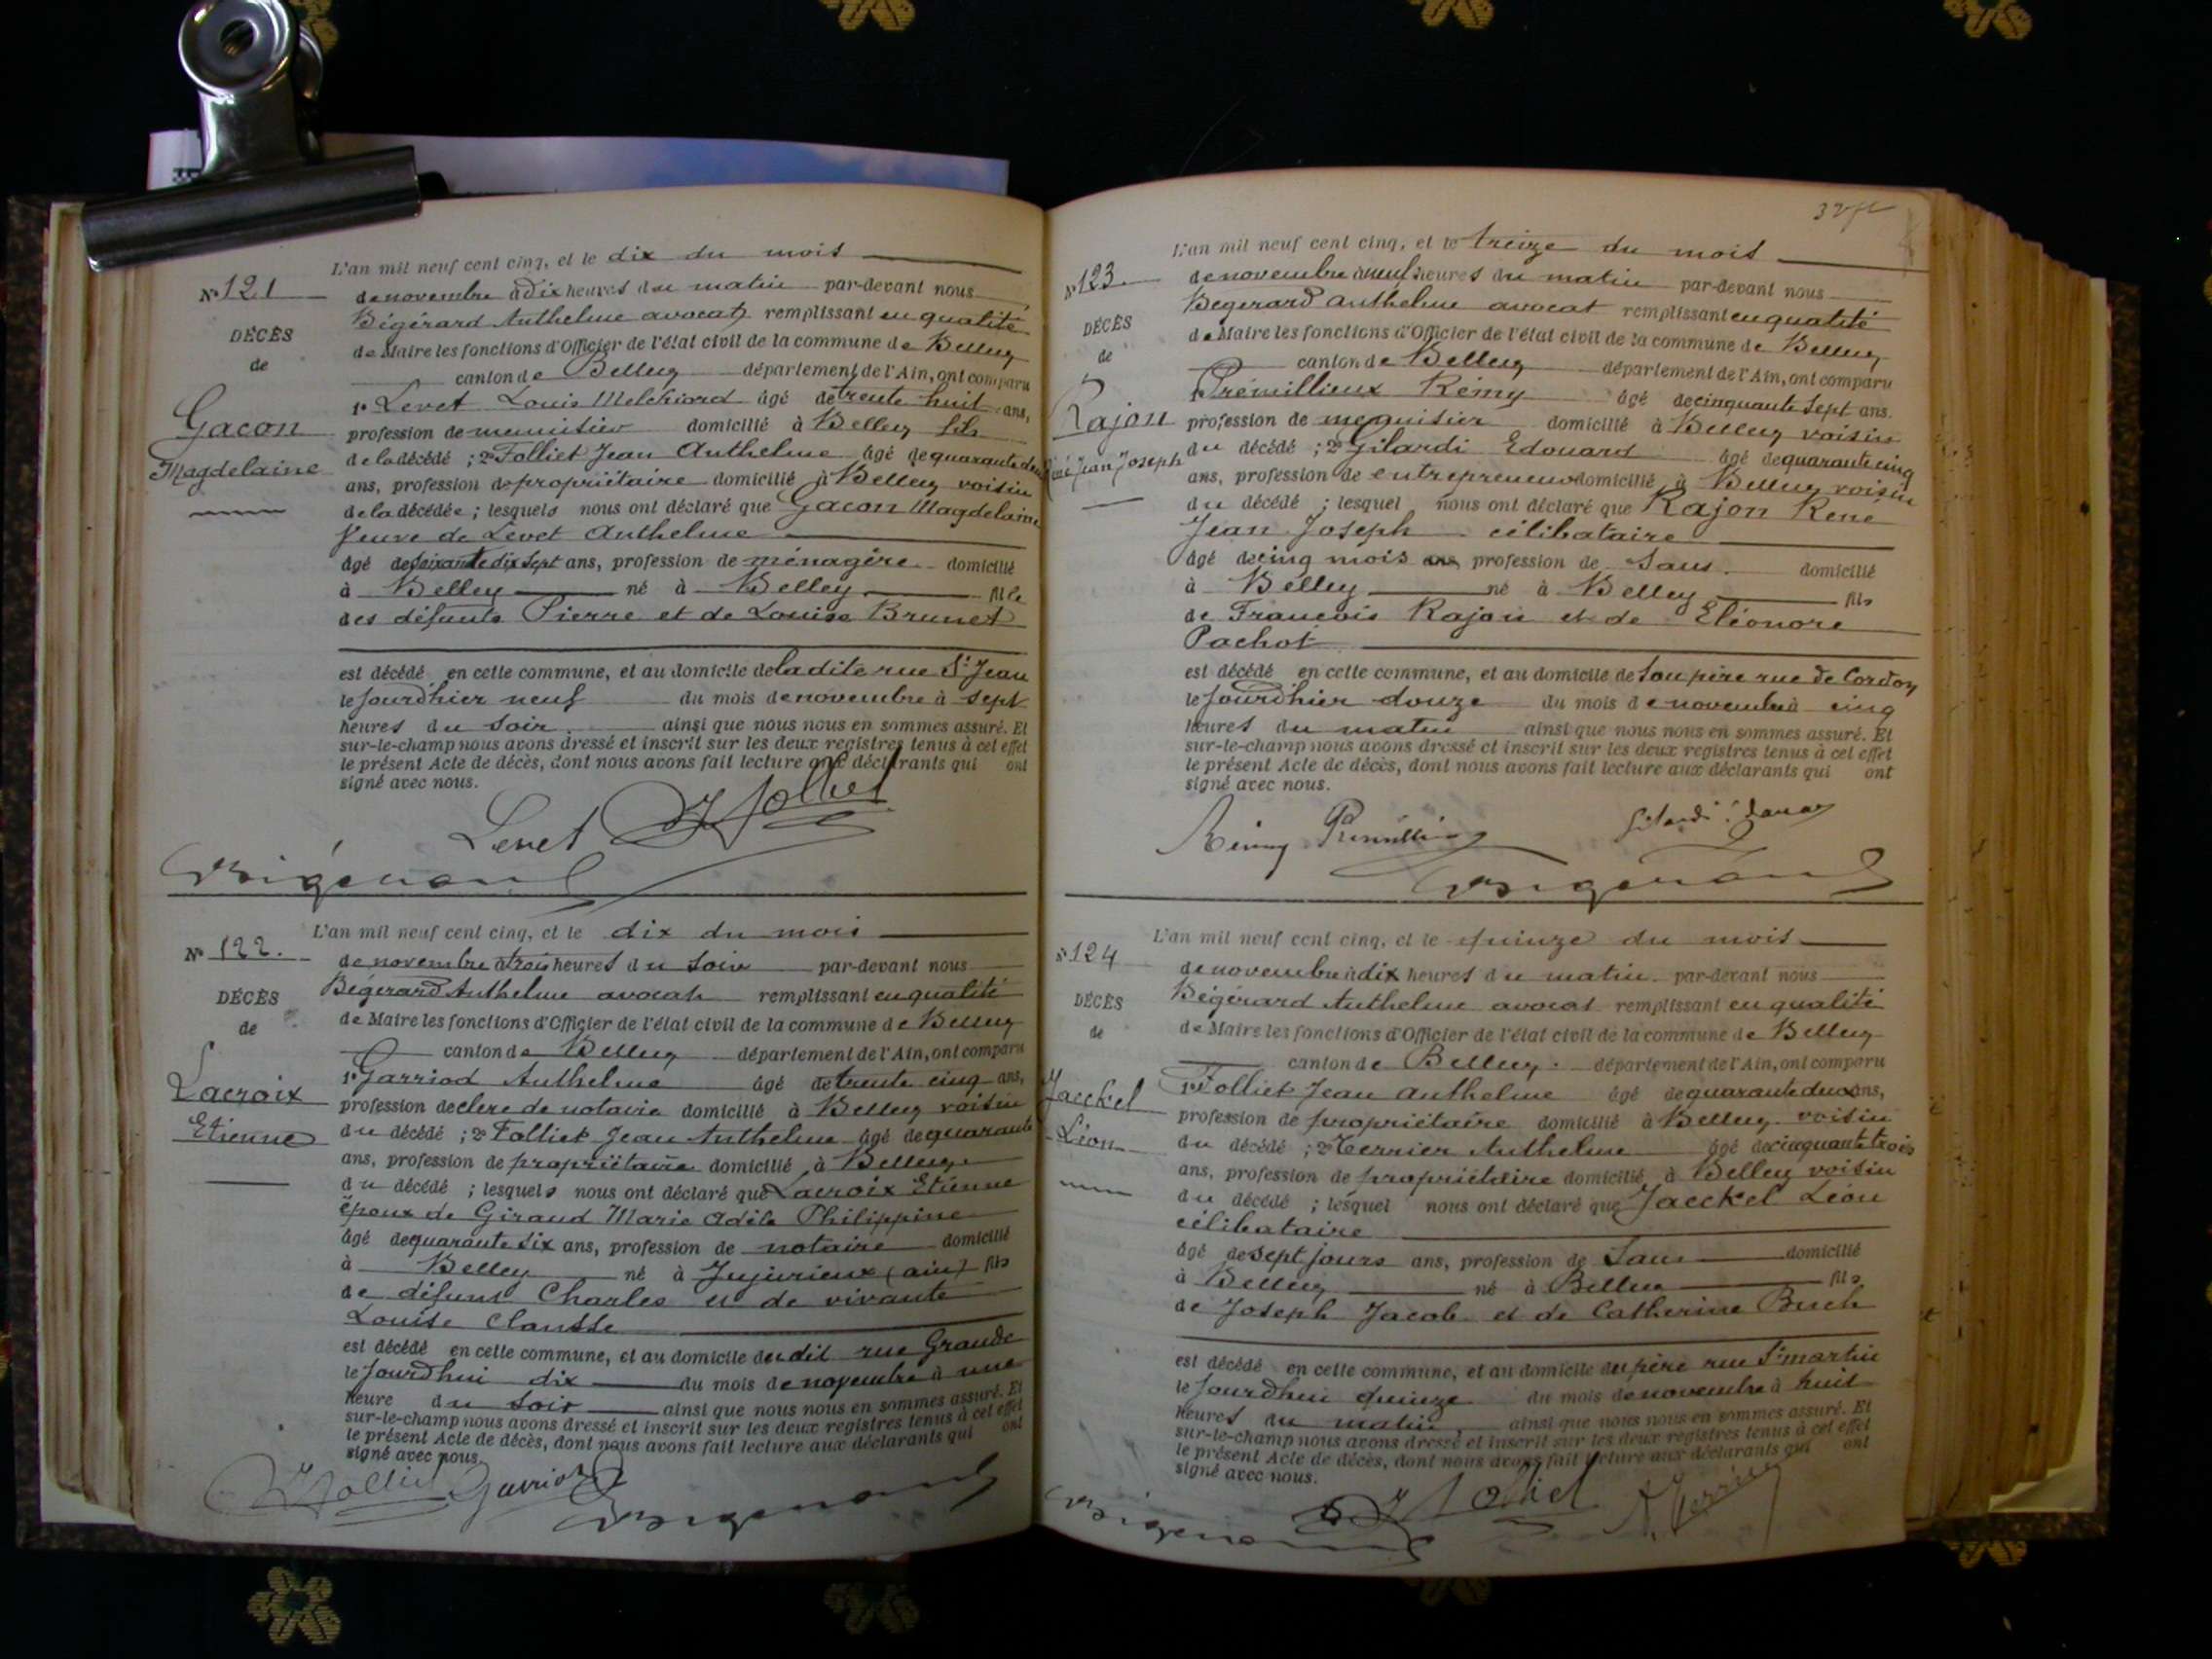 L'an mil neuf cent cinq, et le dix du mois
N° 121
de novembre à dix heures du matin par-devant nous
Bégérard Anthelme avocat remplissant en qualité
DÉCÈS
de Maire les fonctions d'Officier de l'état civil de la commune de Belley
de
canton de Belley département de l'Ain, ont comparu
1° Levet Louis Melchiord âgé de trente huit ans,
Gacon
profession de menuisier domicilié à Belley fils
Magdelaine
de la décédé ; 2° Folliet Jean Anthelme âgé de quarante deux
ans, profession de propriétaire domicilié à Belley voisin
de la décédée ; lesquels nous ont déclaré que Gacon Magdelaine
Veuve de Levet Anthelme
âgé de soixante dix sept ans, profession de ménagère domicilié
à Belley né à Belley fille
des défunts Pierre et de Louise Brunet
est décédé en cette commune, et au domicile de ladite rue St Jean
le jourd'hier neuf du mois de novembre à sept
heures du soir ainsi que nous nous en sommes assuré. Et
sur-le-champ nous avons dressé et inscrit sur les deux registres tenus à cet effet
le présent Acte de décès, dont nous avons fait lecture aux déclarants qui ont
signé avec nous.
Levet JFolliet
Bégérard
L'an mil neuf cent cinq, et le dix du mois
N° 122.
de novembre à trois heures du soir par-devant nous
Bégerard Anthelme avocat remplissant en qualité
DÉCÈS
de Maire les fonctions d'Officier de l'état civil de la commune de Belley
de
canton de Belley département de l'Ain, ont comparu
1° Garriod Anthelme âgé de trente cinq ans,
Lacroix
profession de clerc de notaire domicilié à Belley voisin
Etienne
du décédé ; 2° Folliet Jean Anthelme âgé de quarante
ans, profession de propriétaire domicilié à Belley
du décédé ; lesquels nous ont déclaré que Lacroix Etienne
époux de Giraud Marie Adèle Philippine
âgé de quarante six ans, profession de notaire domicilié
à Belley né à Jujurieux (ain) fils
de défunt Charles et de vivante
Louise Clausse
est décédé en cette commune, et au domicile du dit rue Grande
le jourd'hui dix du mois de novembre à une
heure du soir ainsi que nous nous en sommes assuré. Et
sur-le-champ nous avons dressé et inscrit sur les deux registres tenus à cet effet
le présent Acte de décès, dont nous avons fait lecture aux déclarants qui ont
signé avec nous.
JFolliet Garriod
Bégérard
L'an mil neuf cent cinq, et le treize du mois
N° 123
de novembre à neuf heures du matin par-devant nous
Bégerard Anthelme avocat remplissant en qualité
DÉCÈS
de Maire les fonctions d'Officier de l'état civil de la commune de Belley
de
canton de Belley département de l'Ain, ont comparu
1° Prémillieux Rémy âgé de cinquante sept ans.
Rajon
profession de menuisier domicilié à Belley voisin
René Jean Joseph
du décédé ; 2° Gilardi Edouard âgé de quarante cinq
ans, profession de entrepreneur domicilié à Belley voisin
du décédé ; lesquel nous ont déclaré que Rajon René
Jean Joseph célibataire
âgé de cinq mois ans profession de Sans domicilié
à Belley né à Belley fils
de François Rajon et de Eléonore
Pachot
est décédé en cette commune, et au domicile de son père rue de Cordon
le jourd'hier douze du mois de novembre à cinq
heures du matin ainsi que nous nous en sommes assuré. Et
sur-le-champ nous avons dressé et inscrit sur les deux registres tenus à cet effet
le présent Acte de décès, dont nous avons fait lecture aux déclarants qui ont
signé avec nous.
Rémy Prémillieux Gilardi Edouard
Bégérard
L'an mil neuf cent cinq, et le quinze du mois
N° 124
de novembre à dix heures du matin par-devant nous
Bégérard Anthelme avocat remplissant en qualité
DÉCÈS
de Maire les fonctions d'Officier de l'état civil de la commune de Belley
de
canton de Belley département de l'Ain, ont comparu
1° Folliet Jean Anthelme âgé de quarante deux ans,
Jaeckel
profession de propriétaire domicilié à Belley voisin
Léon
du décédé ; 2° Terrier Anthelme âgé de cinquante trois
ans, profession de propriétaire domicilié à Belley voisin
du décédé ; lesquel nous ont déclaré que Jaeckel Léon
célibataire
âgé de sept jours ans, profession de Sans domicilié
à Belley né à Belley fils
de Joseph Jacob et de Catherine Buch
est décédé en cette commune, et au domicile du père rue St martin
le jourd'hui quinze du mois de novembre à huit
heures du matin ainsi que nous nous en sommes assuré. Et
sur-le-champ nous avons dressé et inscrit sur les deux registres tenus à cet effet
le présent Acte de décès, dont nous avons fait lecture aux déclarants qui ont
signé avec nous.
JFolliet A. Terrier
Bégérard